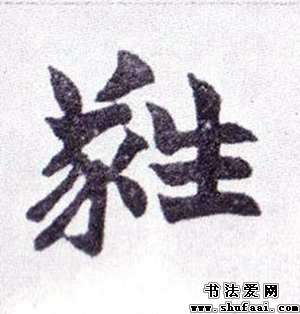 蕤
书法爱网
www.shufaai.com